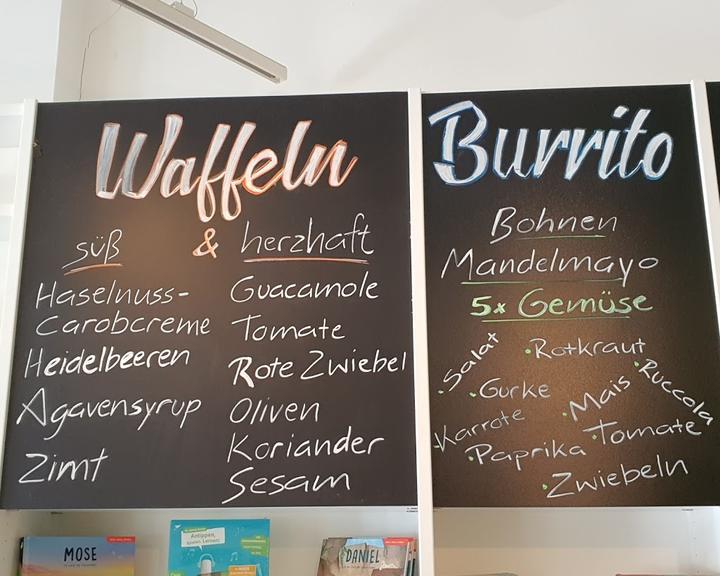 Waffeln
süß & herzhaft
Haselnuss-
Carobcreme
Heidelbeeren
Agavensyrup
Zimt
Guacamole
Tomate
Rote Zwiebel
Oliven
Koriander
Sesam
Burrito
Bohnen
Mandelmayo
5x Gemüse
• Salat
• Rotkraut
• Gurke
• Mais
• Ruccola
• Karrote
• Paprika
• Tomate
• Zwiebeln
MOSE
Antippen,
spielen, Lernen!
DANIEL